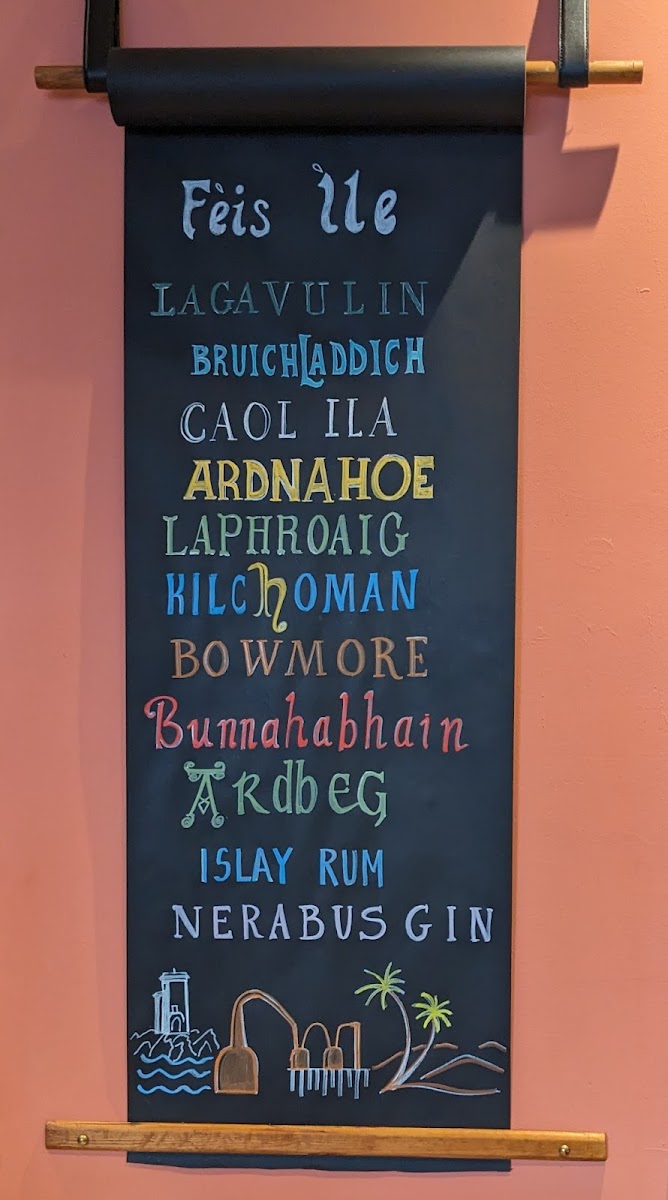 Fèis Ìle
LAGAVULIN
BRUICHLADDICH
CAOL ILA
ARDNAHOE
LAPHROAIG
KILCHOMAN
BOWMORE
Bunnahabhain
ArdbEG
ISLAY RUM
NERABUS GIN